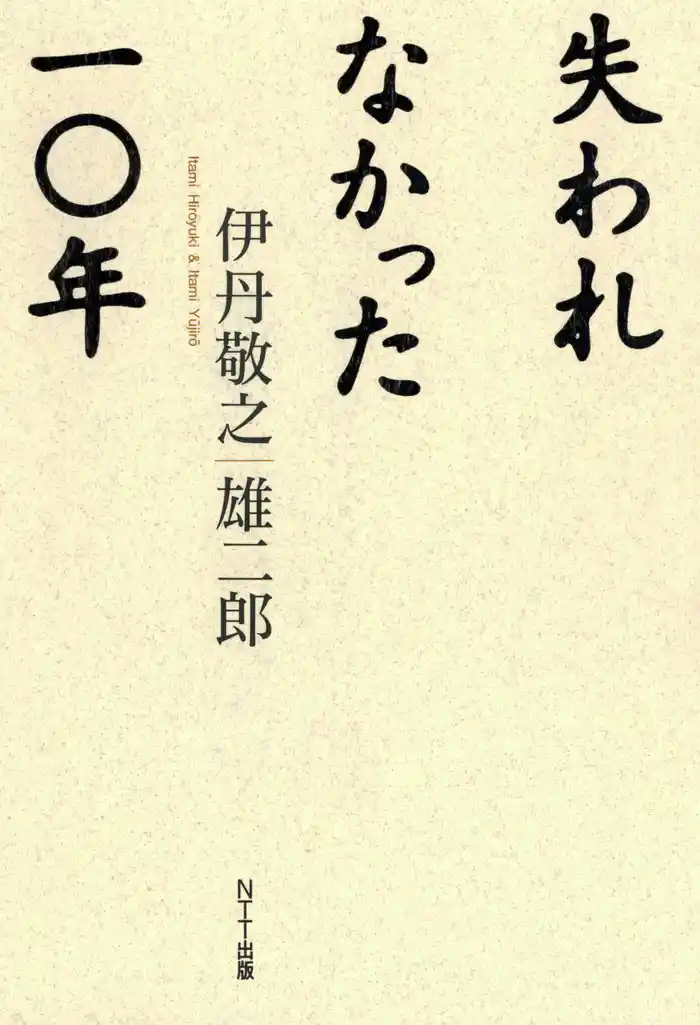 失われ
なかった
一〇年
伊丹敬之|雄二郎
Itami Hiroyuki & Itami Yūjirō
NTT出版